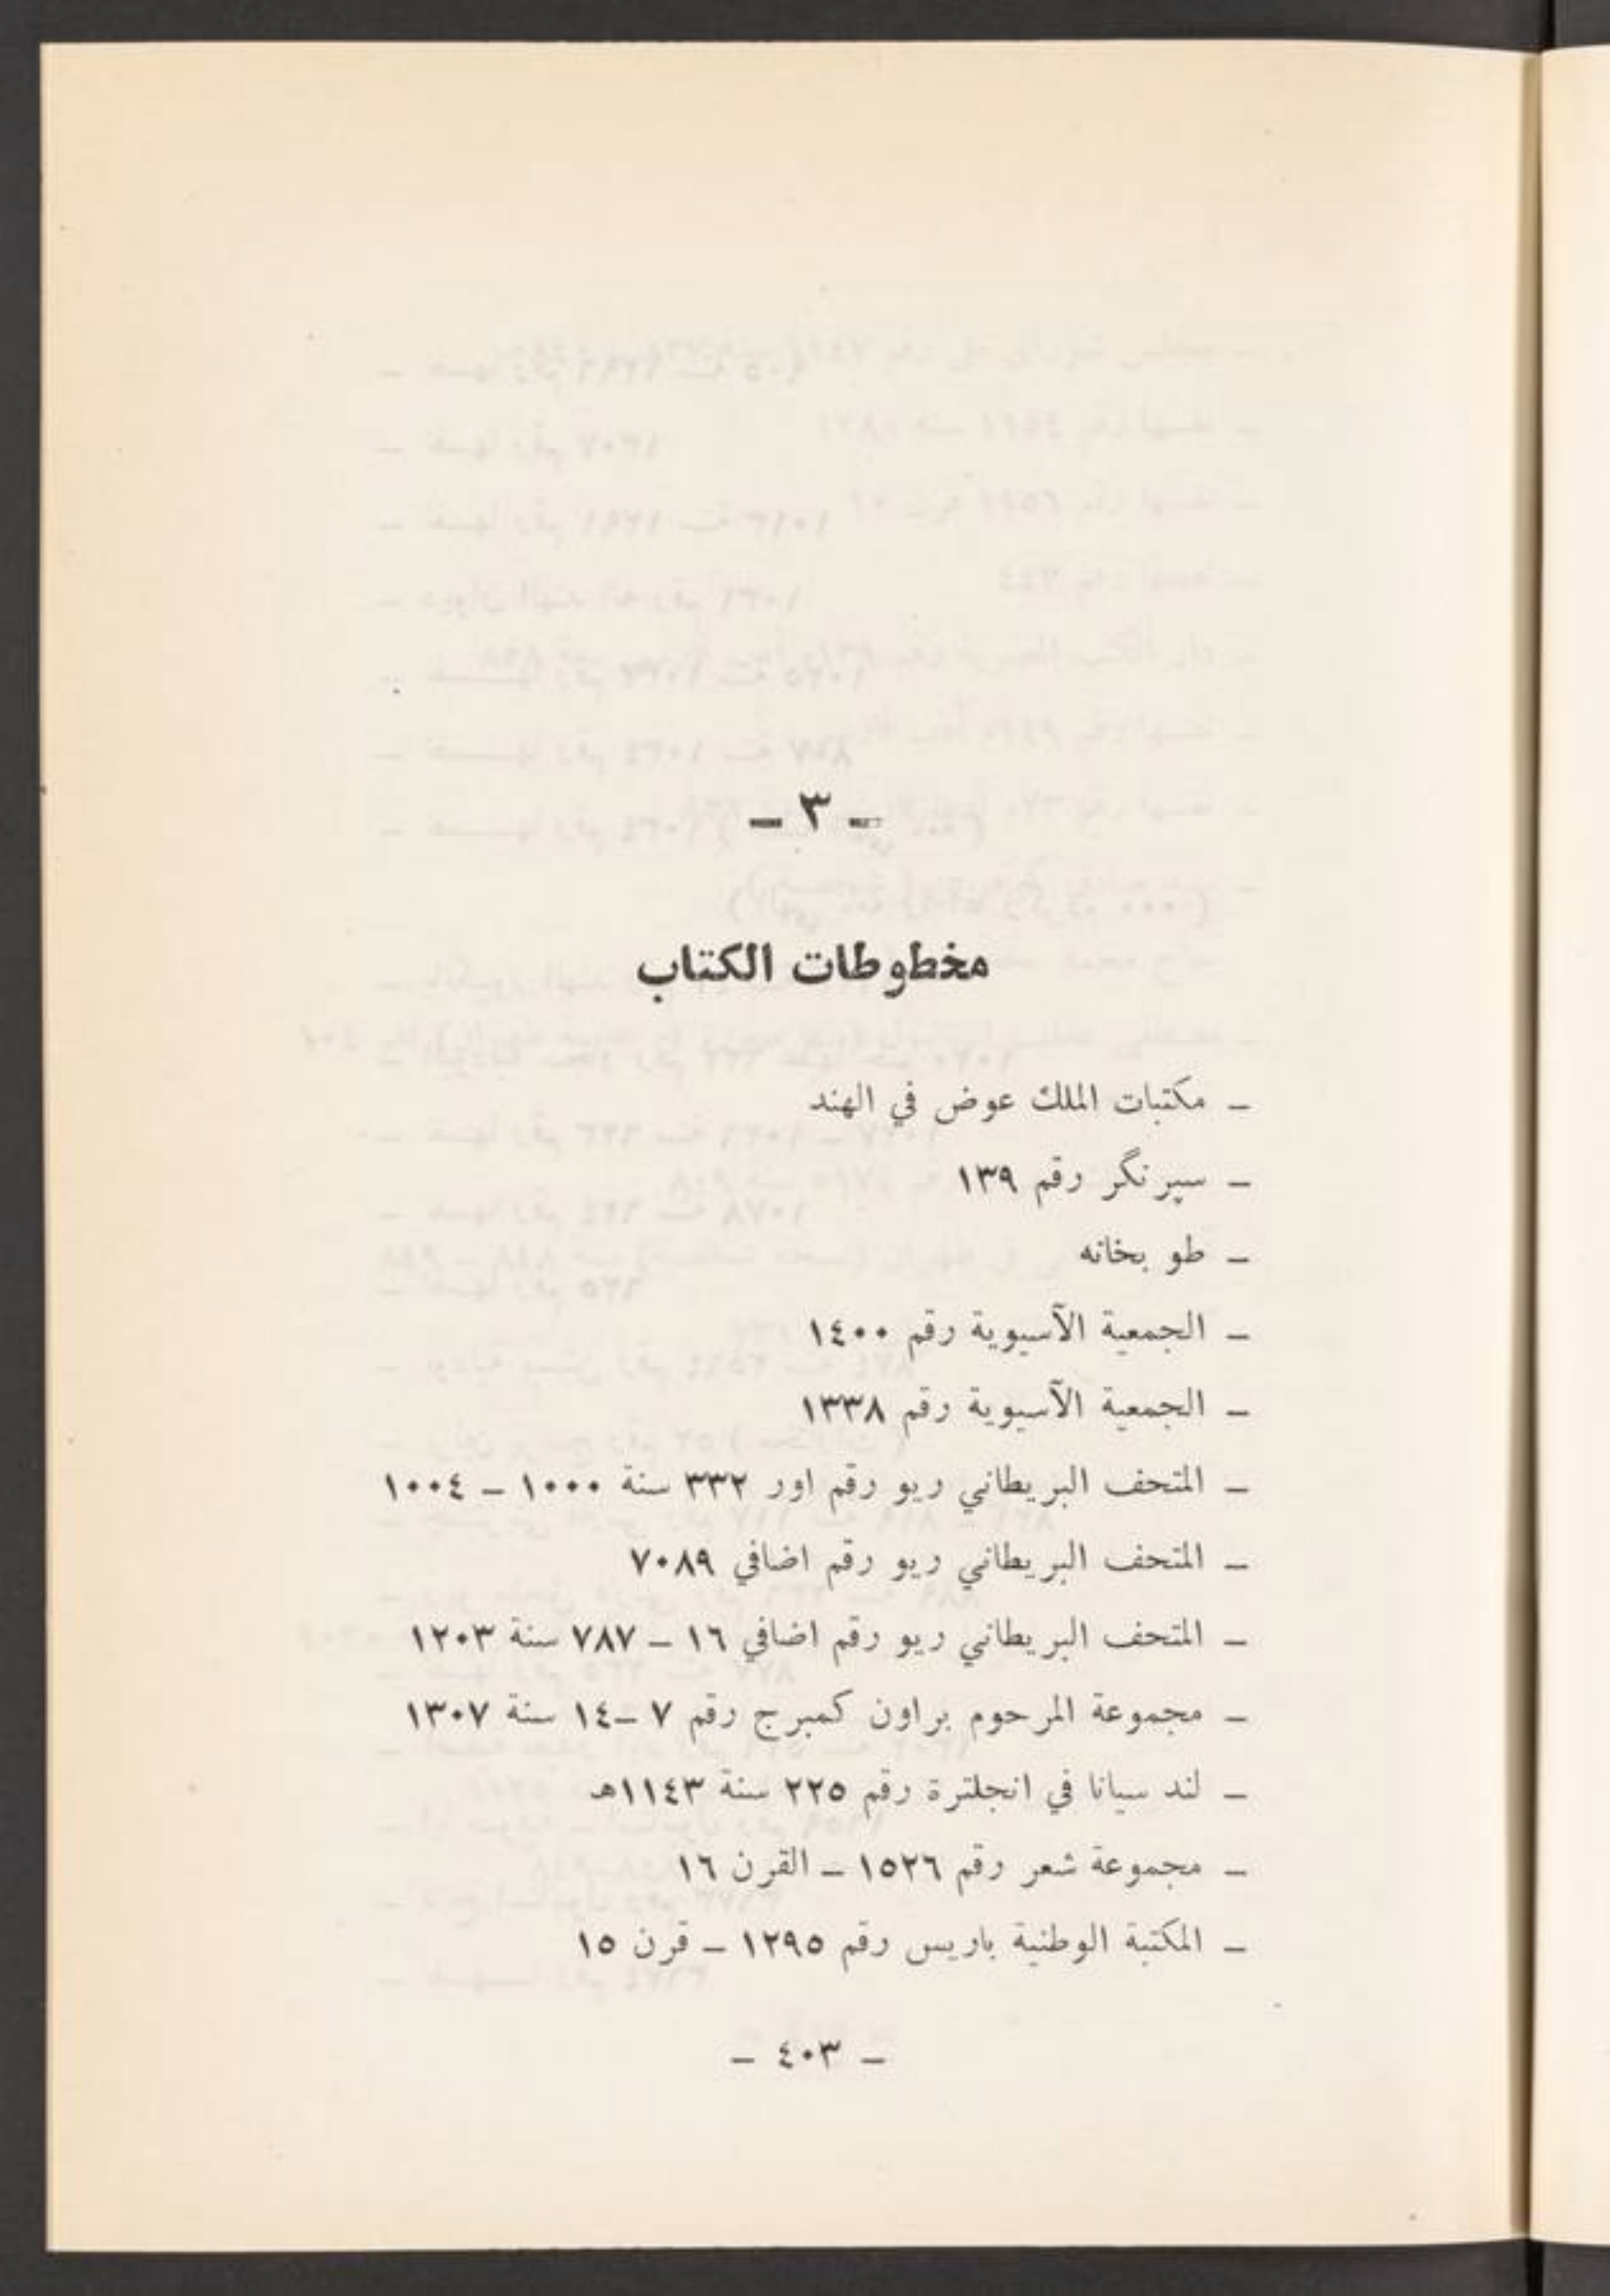 ـ ٣ ـ
مخطوطات الكتاب
ـ مكتبات الملك عوض في الهند
ـ سپرنگر رقم ١٣٩
ـ طو بخانه
ـ الجمعية الآسيوية رقم ١٤٠٠
ـ الجمعية الآسيوية رقم ١٣٣٨
ـ المتحف البريطاني ريو رقم اور ٣٣٢ سنة ١٠٠٠ ـ ١٠٠٤
ـ المتحف البريطاني ريو رقم اضافي ٧٠٨٩
ـ المتحف البريطاني ريو رقم اضافي ١٦ ـ ٧٨٧ سنة ١٢٠٣
ـ مجموعة المرحوم براون كمبرج رقم ٧ ـ١٤ سنة ١٣٠٧
ـ لند سيانا في انجلترة رقم ٢٢٥ سنة ١١٤٣هـ
ـ مجموعة شعر رقم ١٥٢٦ ـ القرن ١٦
ـ المكتبة الوطنية باريس رقم ١٢٩٥ ـ قرن ١٥
ـ ٤٠٣ ـ